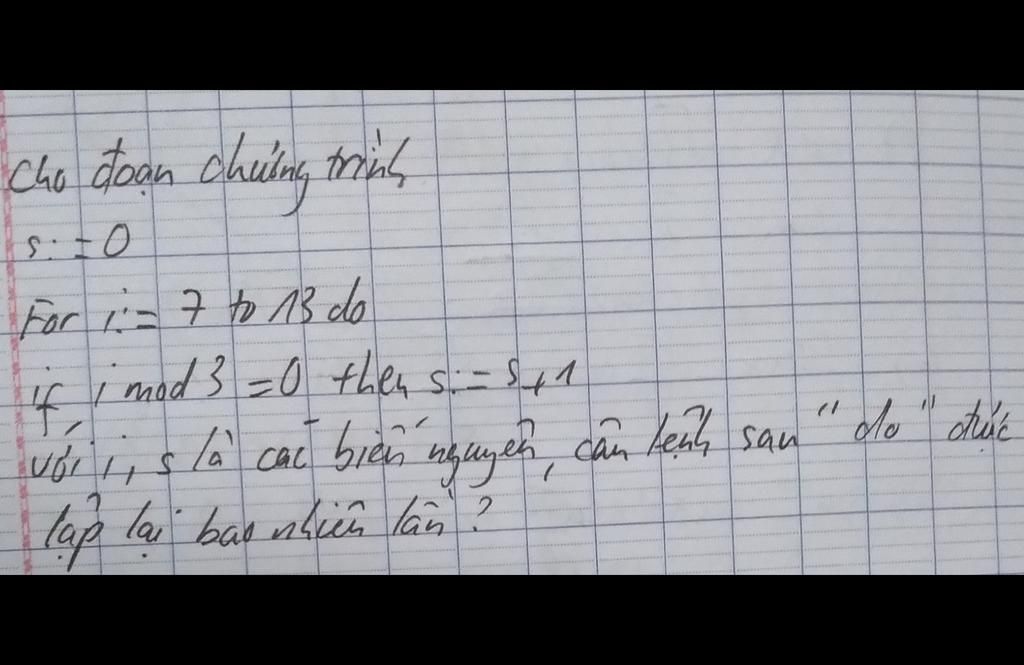 Cho đoạn chương trình
s:=0
For i:= 7 to 13 do
if i mod 3 =0 then s:= s+1
với i, s là các biến nguyên, câu lệnh sau "do" được
lặp lại bao nhiêu lần?